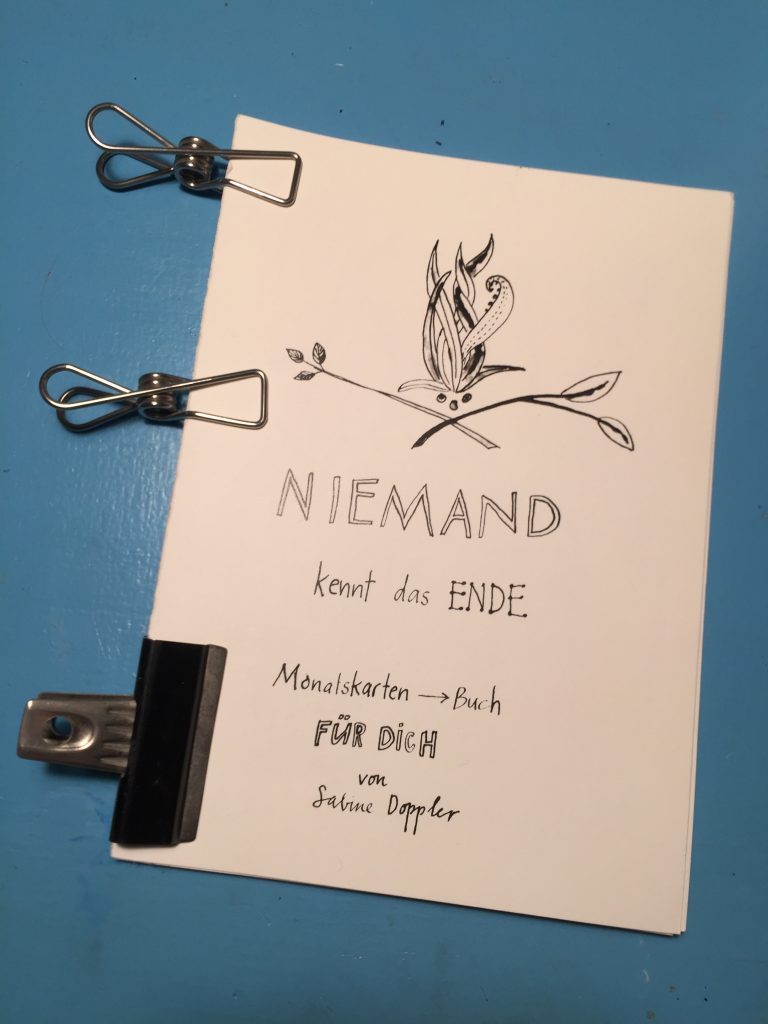 NIEMAND
kennt das ENDE
Monatskarten → Buch
FÜR DICH
von
Sabine Doppler